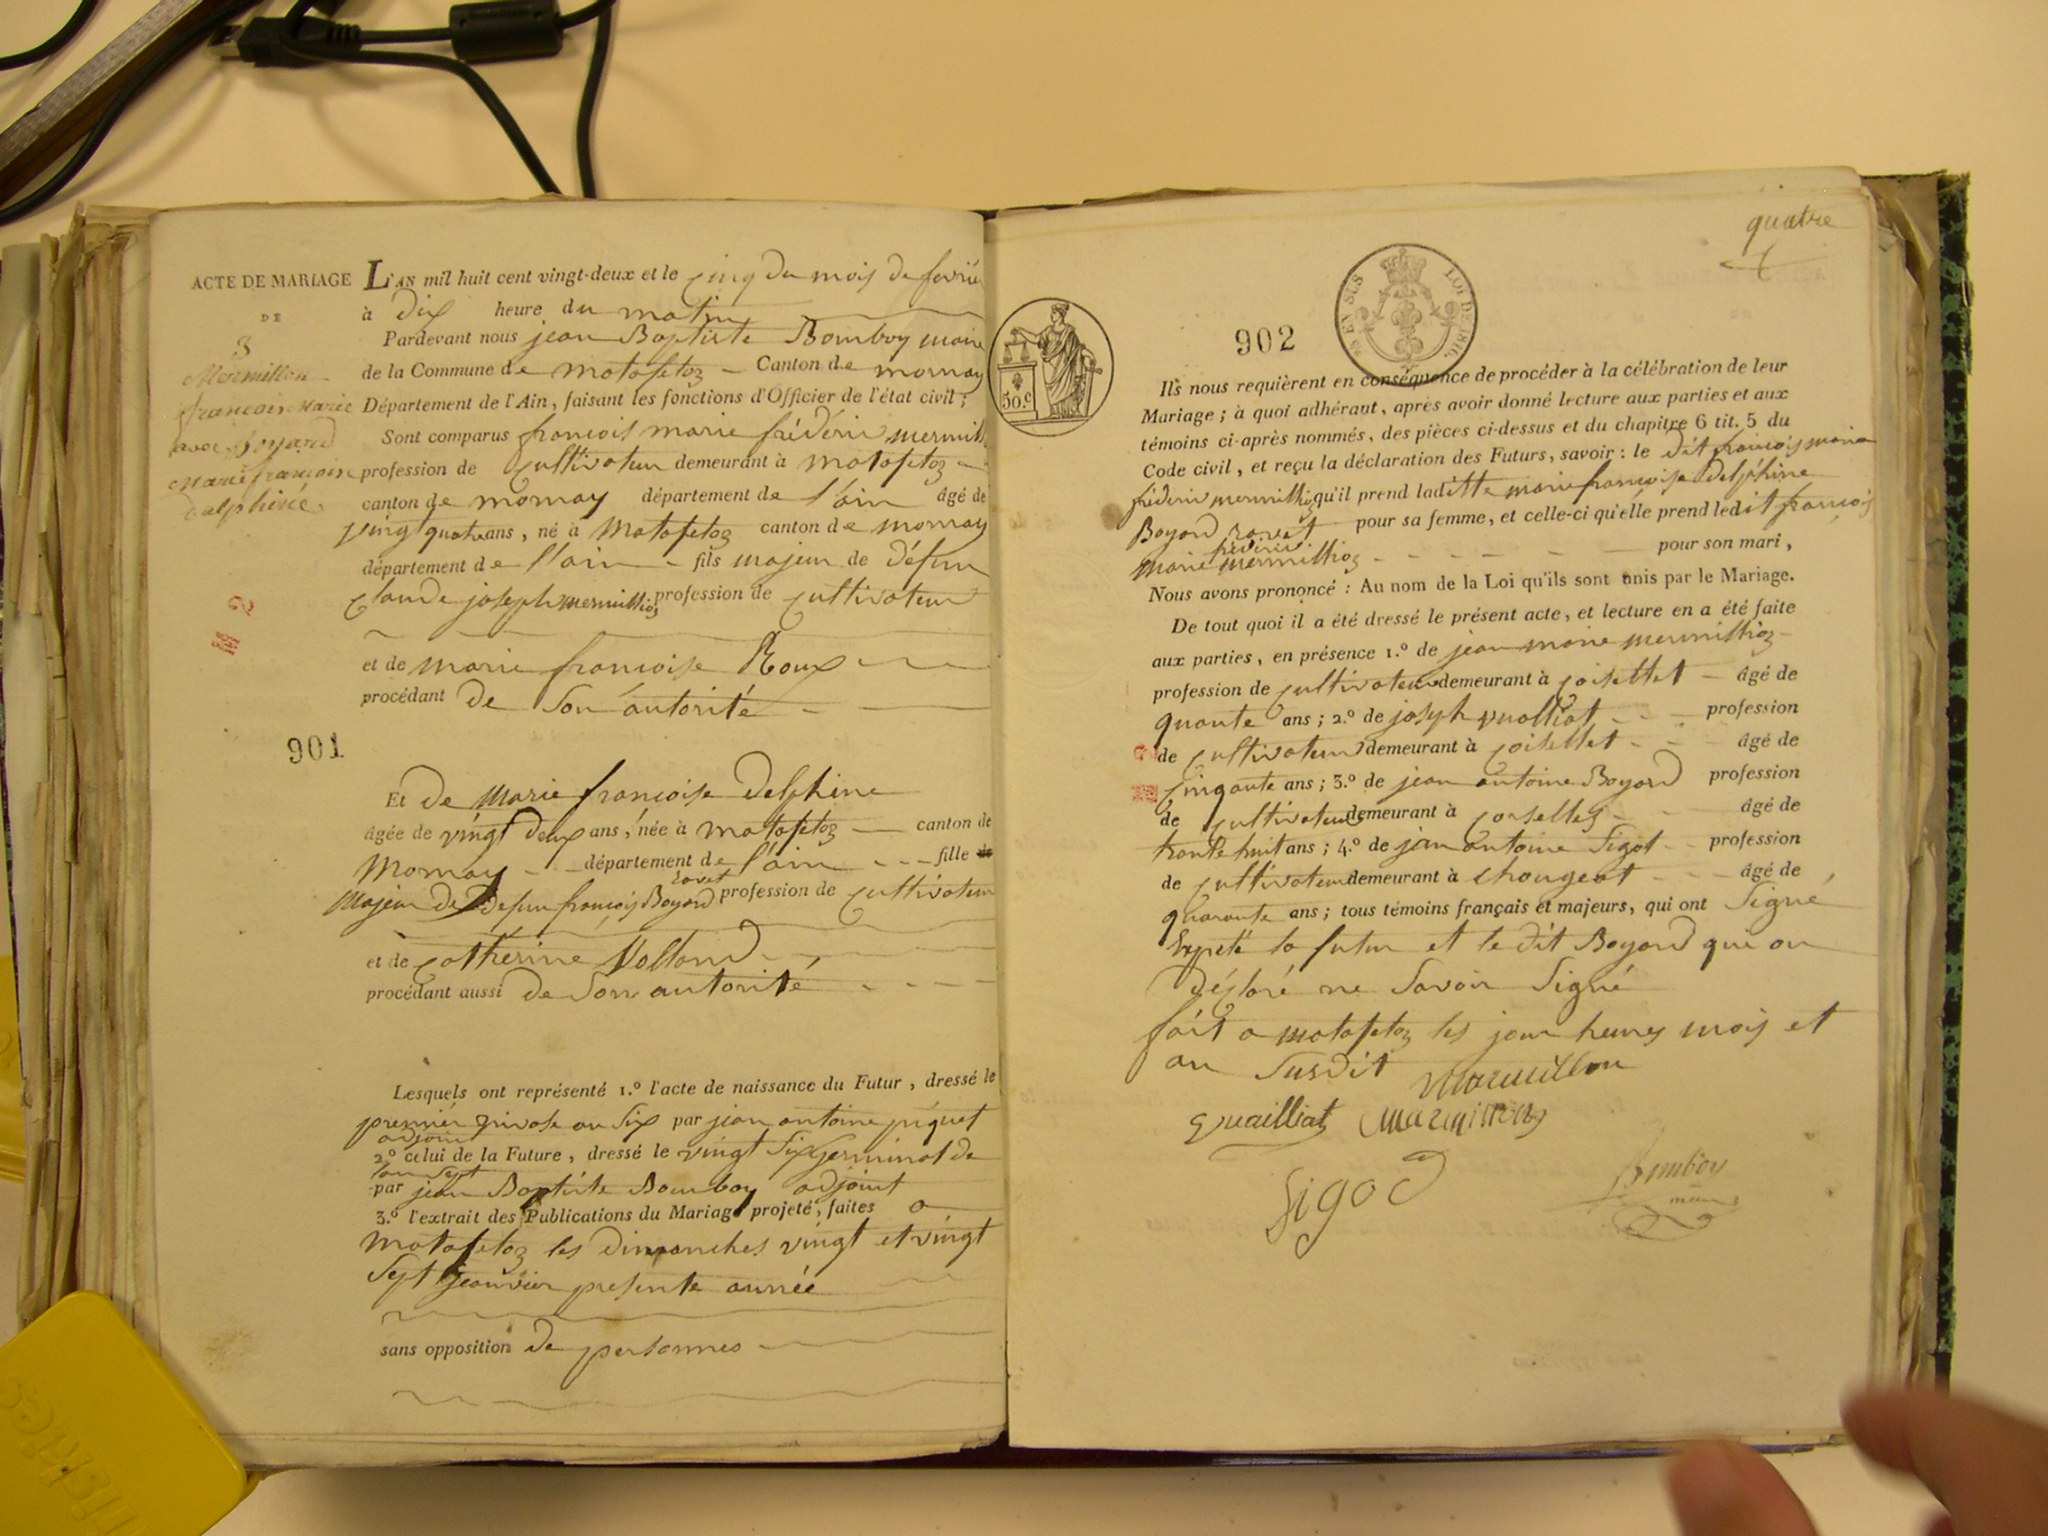 ACTE DE MARIAGE
DE
3
Mermillon
françois Marie
avec Boyard
Marie françoise
delphine
L'AN mil huit cent vingt-deux et le cinq du mois de fevrier
à dix heure du matin
Pardevant nous jean Baptiste Bomboy maire
de la Commune de matafeloz Canton de mornay
Département de l'Ain, faisant les fonctions d'Officier de l'état civil;
Sont comparus françois marie fréderic mermill
profession de Cultivateur demeurant à matafeloz
canton de mornay département de l'ain âgé de
vingt quatre ans, né à Matafeloz canton de mornay
département de l'ain fils majeur de défun
Claude joseph mermillioz profession de Cultivateur
et de marie françoise Roux
procédant de Son autorité
901
Et de Marie françoise delphine
âgée de vingt deux ans, née à matafeloz canton de
Mornay département de l'ain fille de
ravet
Majeur de Defun françois Boyard profession de Cultivateur
et de Catherine Volland
procédant aussi de Son autorité
Lesquels ont représenté 1.º l'acte de naissance du Futur, dressé le
premier nivose an Six par jean antoine piquet
adjoint
2.º celui de la Future, dressé le vingt Six germinal de
l'an Sept
par jean Baptiste Bomboy adjoint
3.º l'extrait des Publications du Mariage projeté, faites a
Matafeloz les dimanches vingt et vingt
Sept jeanvier presente année
sans opposition de personnes
quatre
4
EN SUS LOI DE 1816
50.c
902
Ils nous requièrent en conséquence de procéder à la célébration de leur
Mariage; à quoi adhéraut, après avoir donné lecture aux parties et aux
témoins ci-après nommés, des pièces ci-dessus et du chapitre 6 tit. 5 du
Code civil, et reçu la déclaration des Futurs, savoir: le dit françois marie
fréderic mermillioz qu'il prend laditte marie françoise delphine
Boyard ravet pour sa femme, et celle-ci qu'elle prend ledit françois
fréderic
marie mermillioz pour son mari,
Nous avons prononcé: Au nom de la Loi qu'ils sont unis par le Mariage.
De tout quoi il a été dressé le présent acte, et lecture en a été faite
aux parties, en présence 1.º de jean marie mermillioz
profession de Cultivateur demeurant à Coisellet âgé de
quarante ans; 2.º de joseph vualliat profession
de Cultivateur demeurant à Coisellet âgé de
Cinqante ans; 3.º de jean antoine Boyard profession
de Cultivateur demeurant à Corselles âgé de
trante huit ans; 4.º de jean antoine Sigot profession
de Cultivateur demeurant à Chougeat âgé de
quarante ans; tous témoins français et majeurs, qui ont Signé
la futur et le dit Boyard qui on
déclaré ne Savoir Signé
fait a matafeloz les jour heures mois et
an Susdit Marmillon
Vuailliat Marmillioz
Sigod
Bomboy
maire